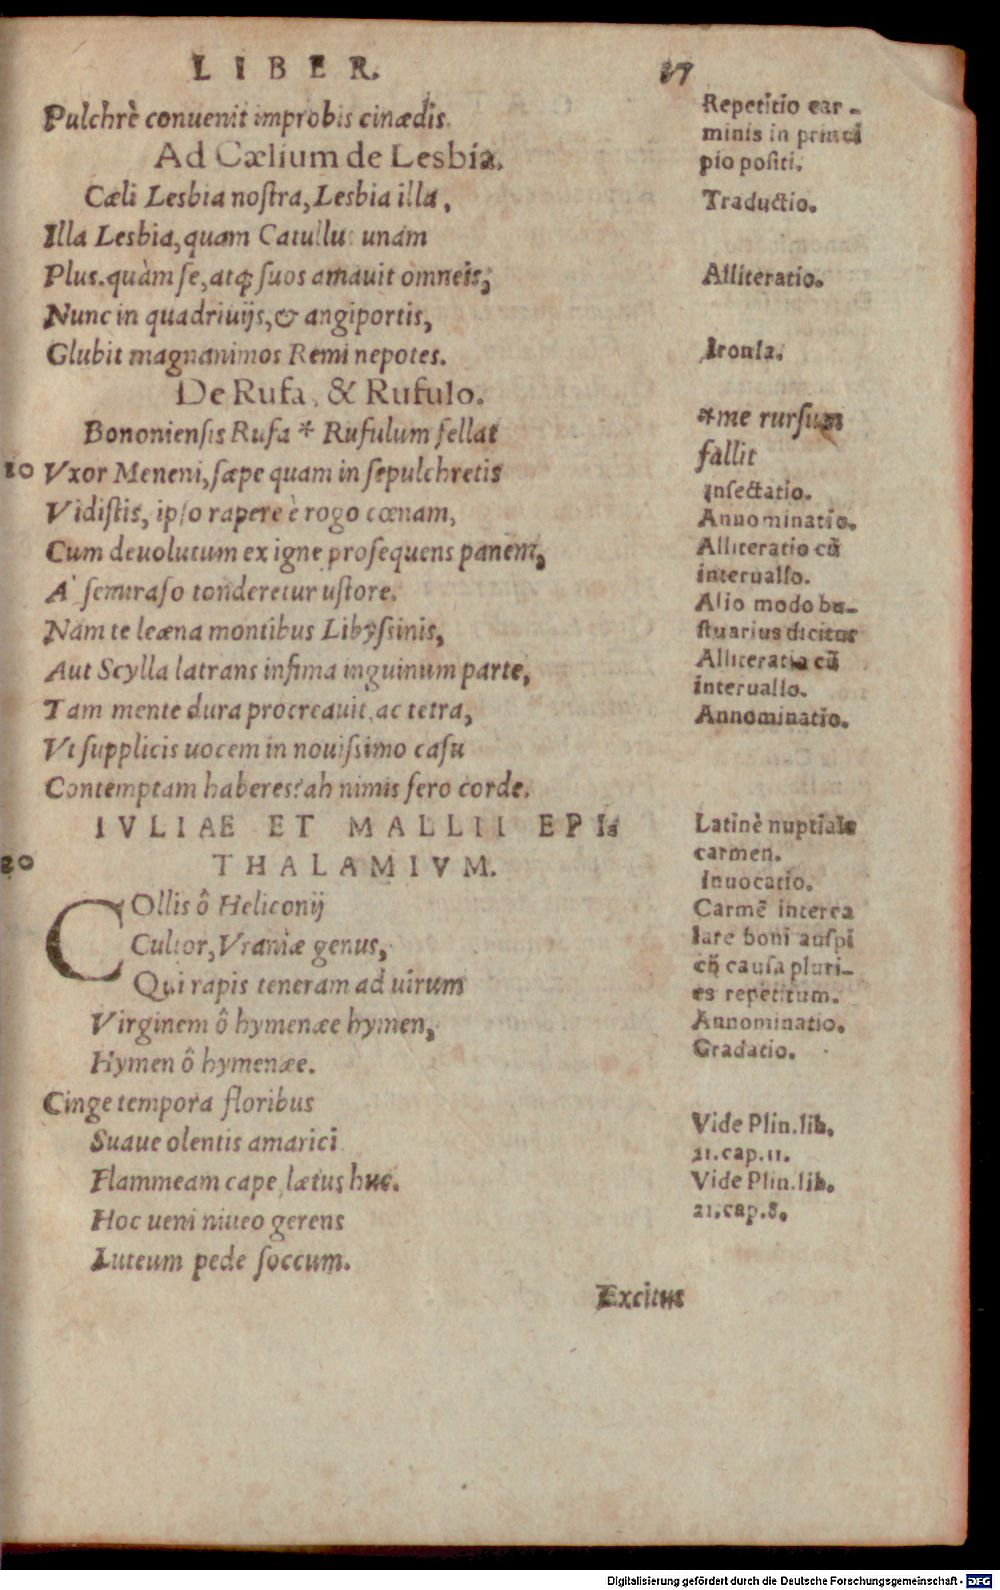 LIBER. 27
Pulchrè conuenit improbis cinædis.
Ad Cælium de Lesbia.
Cæli Lesbia nostra, Lesbia illa,
Illa Lesbia, quam Catullus unam
Plus, quàm se, atq; suos amauit omneis,
Nunc in quadriuijs, & angiportis,
Glubit magnanimos Remi nepotes.
De Rufa, & Rufulo.
Bononiensis Rufa * Rufulum fellat
10 Vxor Meneni, sæpe quam in sepulchretis
Vidistis, ipso rapere è rogo cœnam,
Cum deuolutum ex igne prosequens panem,
A' semiraso tonderetur ustore.
Nam te leæna montibus Libyssinis,
Aut Scylla latrans infima inguinum parte,
Tam mente dura procreauit, ac tetra,
Vt supplicis uocem in nouissimo casu
Contemptam haberes? ah nimis fero corde.
IVLIAE ET MALLII EPI=
20 THALAMIVM.
COllis ô Heliconij
Cultor, Vraniæ genus,
Qui rapis teneram ad uirum
Virginem ô hymenæe hymen,
Hymen ô hymenæe.
Cinge tempora floribus
Suaue olentis amarici
Flammeam cape, lætus huc.
Hoc ueni niueo gerens
Luteum pede soccum.
Excitus
Repetitio car-
minis in princi
pio positi.
Traductio.
Alliteratio.
Ironia.
*me rursum
fallit
Insectatio.
Annominatio.
Alliteratio cũ
interuallo.
Alio modo bu-
stuarius dicitur
Alliteratia cũ
interuallo.
Annominatio.
Latinè nuptiale
carmen.
Inuocatio.
Carmẽ interca
lare boni auspi
cij causa pluri-
es repetitum.
Annominatio.
Gradatio.
Vide Plin. lib.
21. cap. 11.
Vide Plin. lib.
21. cap. 8.
Digitalisierung gefördert durch die Deutsche Forschungsgemeinschaft - DFG